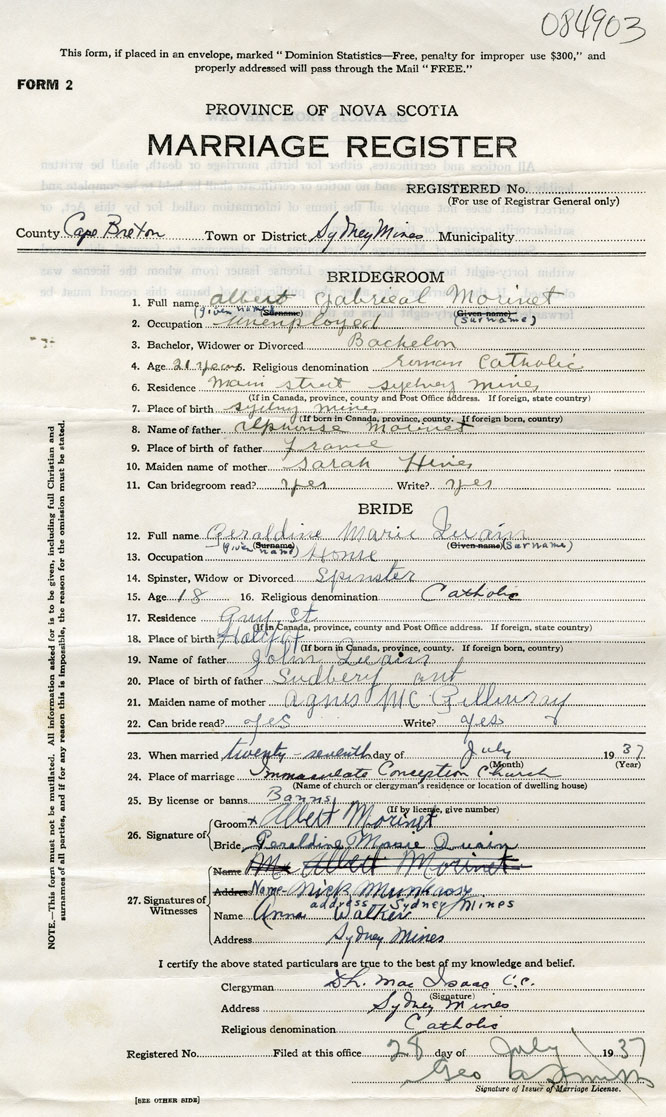 084903
This form, if placed in an envelope, marked "Dominion Statistics—Free, penalty for improper use $300," and
properly addressed will pass through the Mail "FREE."
FORM 2
PROVINCE OF NOVA SCOTIA
MARRIAGE REGISTER
REGISTERED No.
(For use of Registrar General only)
County Cape Breton Town or District Sydney Mines Municipality
BRIDEGROOM
1. Full name albert Gabrieal Morinet
(given name) (Surname) (Given name) (Surname)
2. Occupation unemployed
3. Bachelor, Widower or Divorced Bachelor
4. Age 21 years 5. Religious denomination roman Catholic
6. Residence main street sydney mines
(If in Canada, province, county and Post Office address. If foreign, state country)
7. Place of birth sydney mines
(If born in Canada, province, county. If foreign born, country)
8. Name of father alphonse Morinet
9. Place of birth of father France
10. Maiden name of mother Sarah Hines
11. Can bridegroom read? yes Write? yes
BRIDE
12. Full name Geraldine Marie Quain
(Surname) given name) (Given name) (Surname)
13. Occupation Home
14. Spinster, Widow or Divorced Spinster
15. Age 18 16. Religious denomination Catholic
17. Residence Guy St
(If in Canada, province, county and Post Office address. If foreign, state country)
18. Place of birth Halifax
(If born in Canada, province, county. If foreign born, country)
19. Name of father John Quain
20. Place of father Sudbery ont
21. Maiden name of mother Agnes Mc
22. Can bride read? yes Write? yes
23. When married twenty-seventh day of July 1937
(Month) (Year)
24. Place of marriage Immaculate Conception Church
(Name of church or clergyman's residence or location of dwelling house)
25. By license or banns Banns
(If by license, give number)
26. Signature of
Groom x Albert Morinet
Bride Geraldine Marie Quain
27. Signatures of Witnesses
Name Albert Morinet
Address Name- Nick
address - Sydney Mines
Name Anna Walker
Address Sydney Mines
I certify the above stated particulars are true to the best of my knowledge and belief.
Clergyman Mac Isaac C.C.
(Signature)
Address Sydney Mines
Religious denomination Catholic
Registered No. Filed at this office 28 day of July 1937
Geo
Signature of Issuer of Marriage License.
[SEE OTHER SIDE]
NOTE.—This form must not be mutilated. All information asked for is to be given, including full Christian and
surnames of all parties, and if for any reason this is impossible, the reason for the omission must be stated.